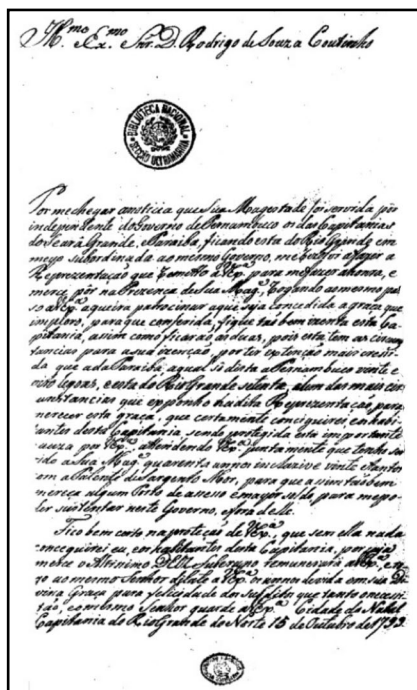 Jll.mo Ex.mo Snr. D. Rodrigo de Souza Coutinho
BIBLIOTECA NACIONAL
SECÇÃO ULTRAMARINA
Por me chegar a noticia que Sua Magestade foi servida pôr
independente do Governo de Pernambuco os das Capitanias
do Seará Grande, e Paraiba, ficando esta do Rio Grande em
meyo subordinada ao mesmo Governo, me
Reprezentação que remetto a V Ex.ª para me fazer a honra, e
merce, por na Prezença de Sua Mag.e, rogando ao mesmo pas
so a V Ex.ª a queira patrocinar a que seja concedida a graça que
imploro, para que conferida, fique tãobem izenta esta Ca-
pitania, assim como ficarão as duas, pois esta tem as circuns
tancias para a sua izenção, por ter extenção mais cresci-
da que a da Paraiba, a qual só dista a Pernambuco vinte e
legoas, e esta do Rio Grande setenta, alem das mais cir
cunstancias que exponho na dita Reprezentação para
merecer esta graça, que certamente conciguirei, e os habi-
tantes desta Capitania sendo protegida esta importante
cauza por V Ex.ª Attendendo V Ex.ª juntamente que tenho ser
vido a Sua Mag.e quarenta annos incluzive vinte e tantos
em a Patente de Sargento Mor, para que assim tãobem
mereça algum Posto de acesso e mayor soldo, para me po-
der sustentar neste Governo, e fora delle.
Fico bem certo na proteção de V Ex.ª, que sem ella nada
conceguirei eu, e os habitantes desta Capitania, por cuja
merce o Altissimo DEUS Suberano remunerará a V Ex.ª, e ro
go ao mesmo Senhor dilate a V Ex.ª os annos de vida em sua Di
vina Graça para felicidade dos Subditos que tanto neces
tão, como mesmo Senhor guarde a V Ex.ª Cidade do Natal
Capitania do Rio Grande do Norte 15 de Outubro de 1799